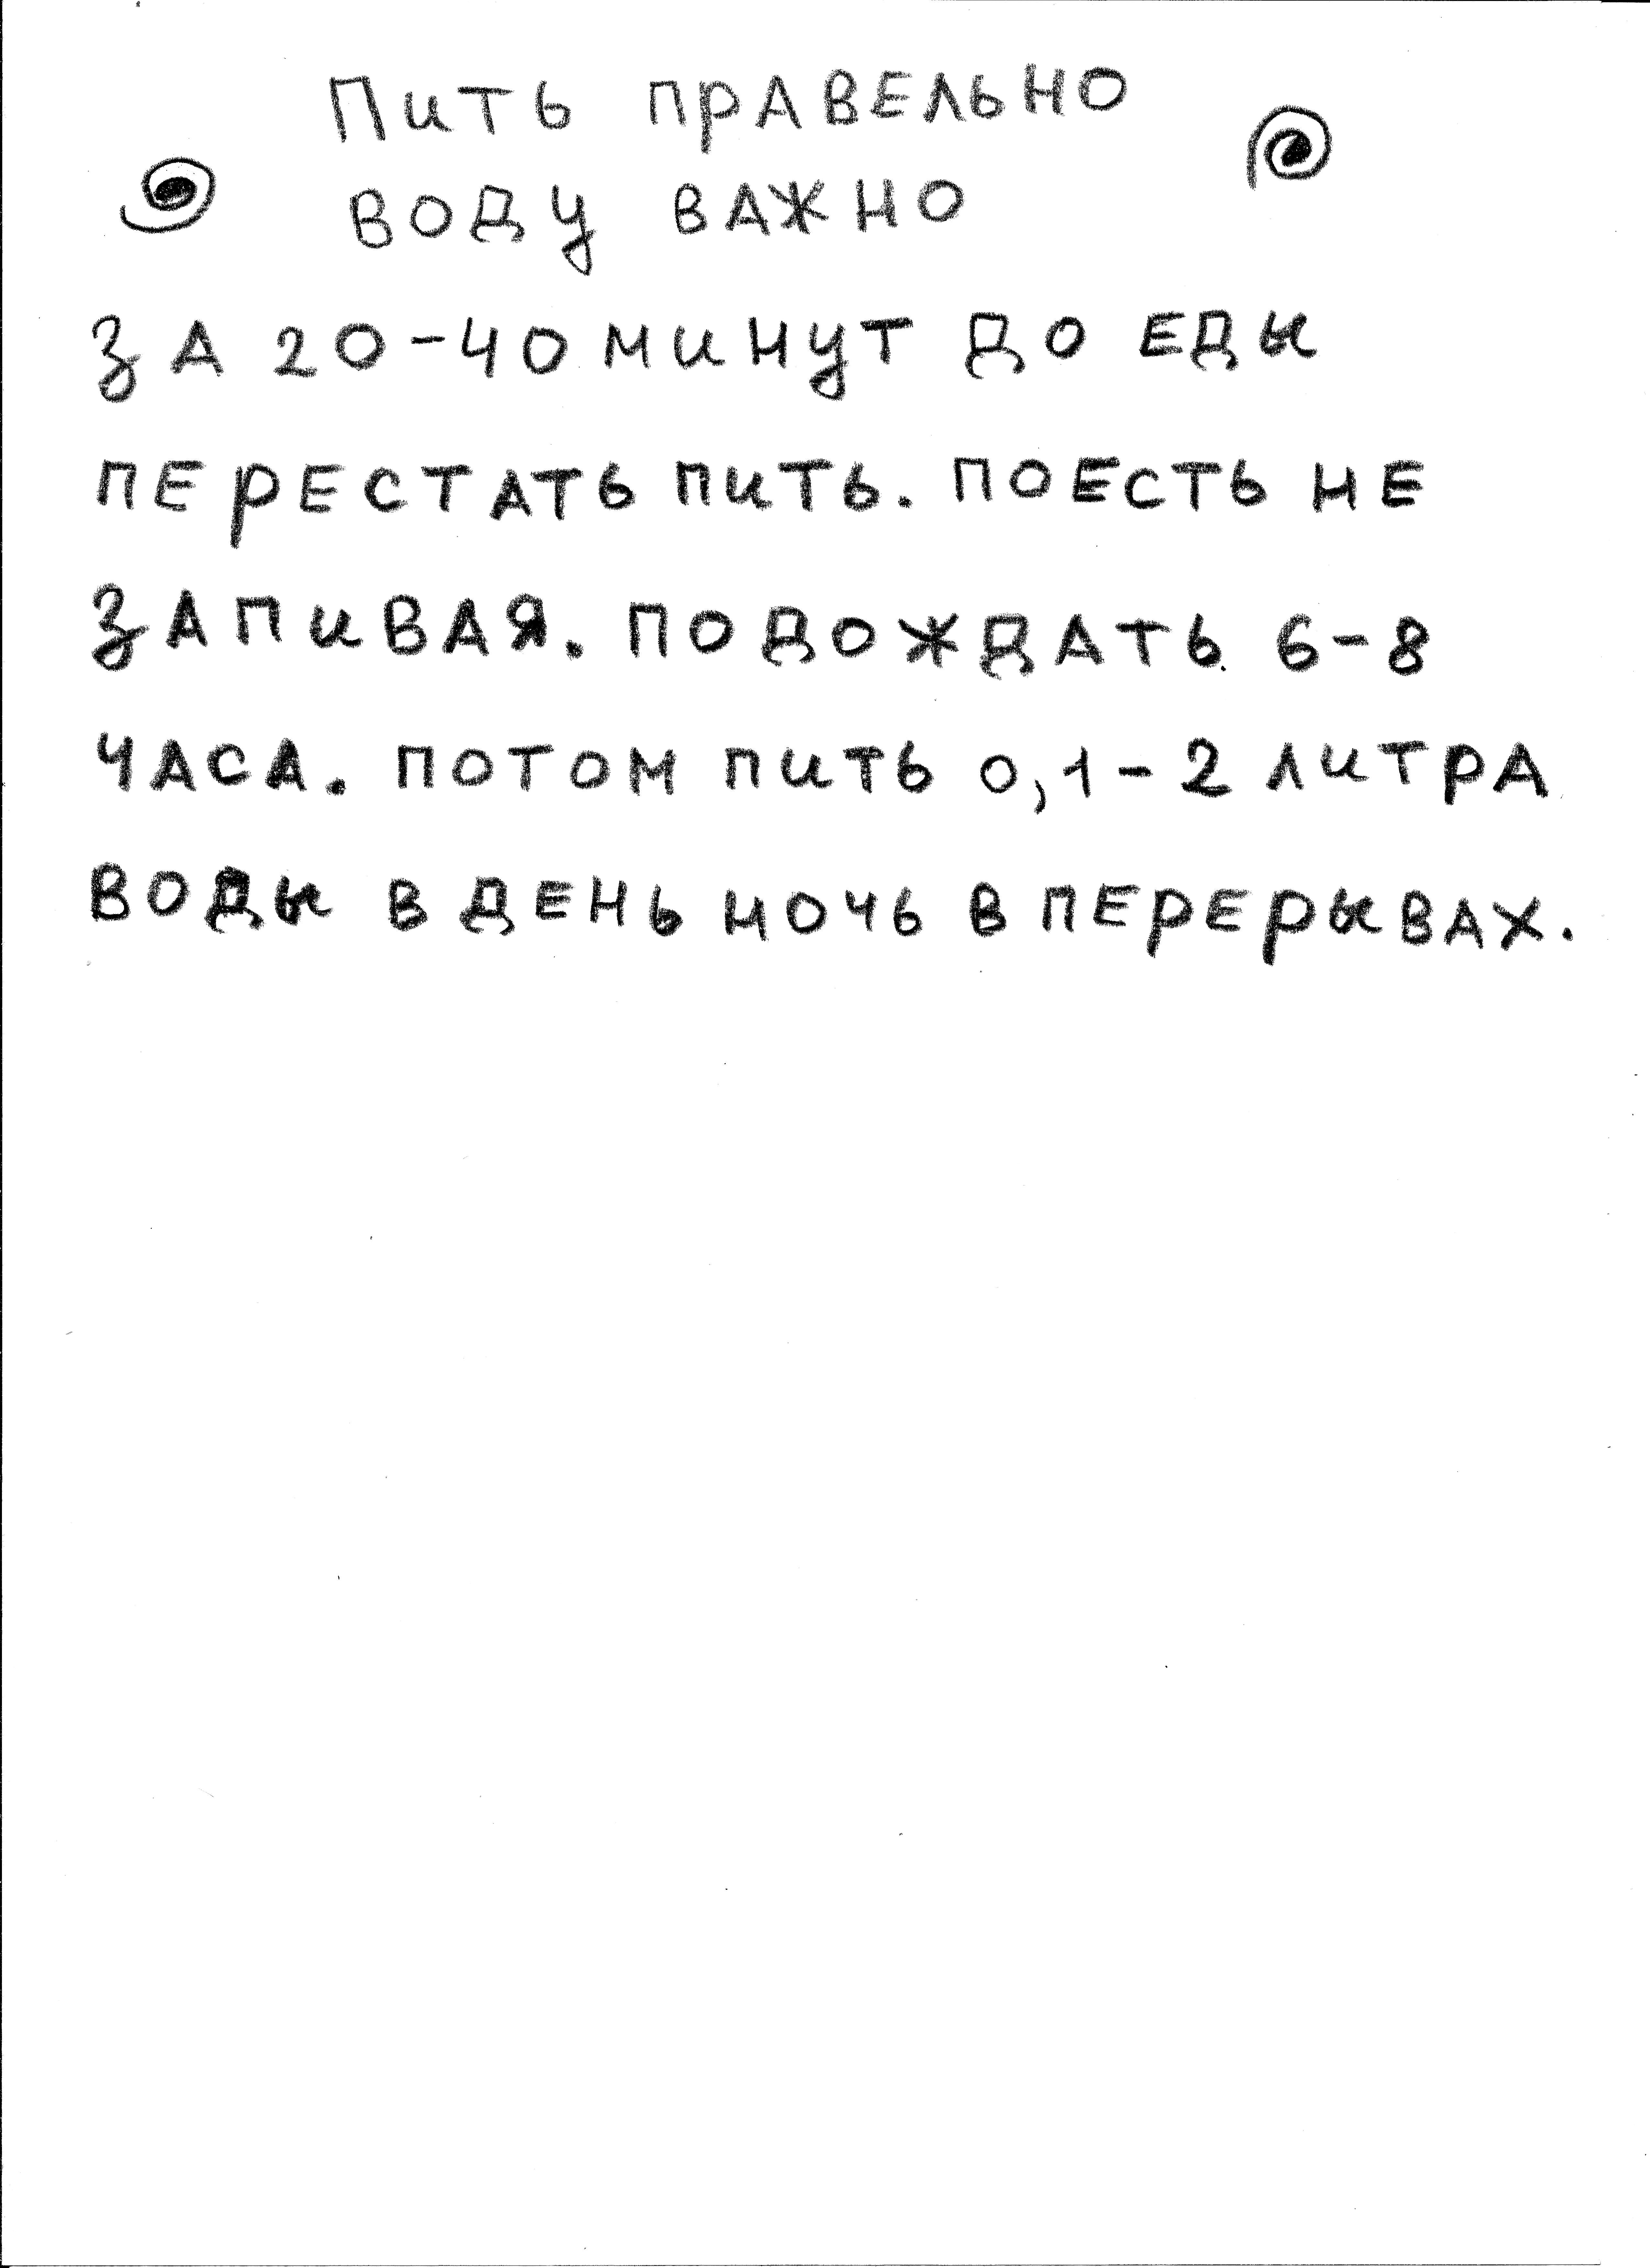 Пить правельно
воду важно
за 20-40 минут до еды
перестать пить. поесть не
запивая. подождать 6-8
часа. потом пить 0,1-2 литра
воды в день ночь в перерывах.